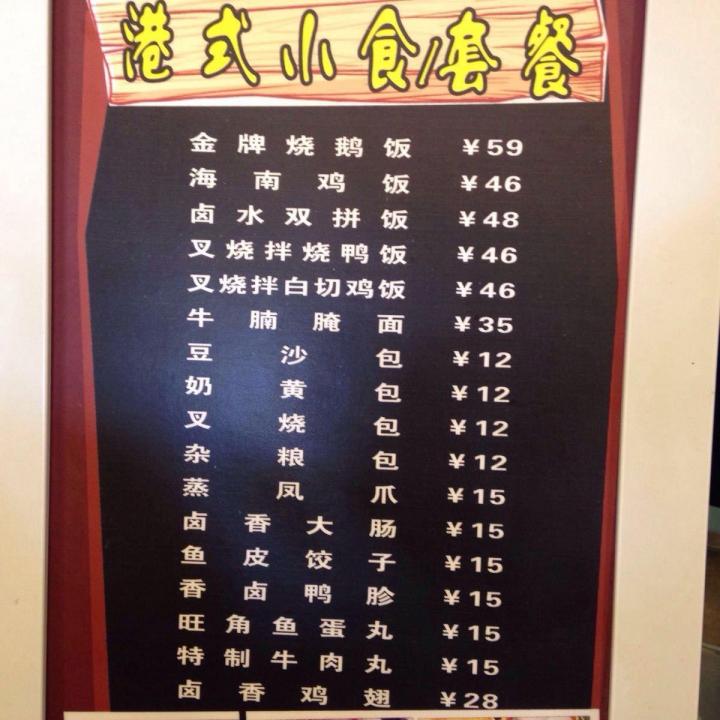 港式小食/套餐
金牌烧鹅饭 ¥59
海南鸡饭 ¥46
卤水双拼饭 ¥48
叉烧拌烧鸭饭 ¥46
叉烧拌白切鸡饭 ¥46
牛腩腌面 ¥35
豆沙包 ¥12
奶黄包 ¥12
叉烧包 ¥12
杂粮包 ¥12
蒸凤爪 ¥15
卤香大肠 ¥15
鱼皮饺子 ¥15
香卤鸭胗 ¥15
旺角鱼蛋丸 ¥15
特制牛肉丸 ¥15
卤香鸡翅 ¥28